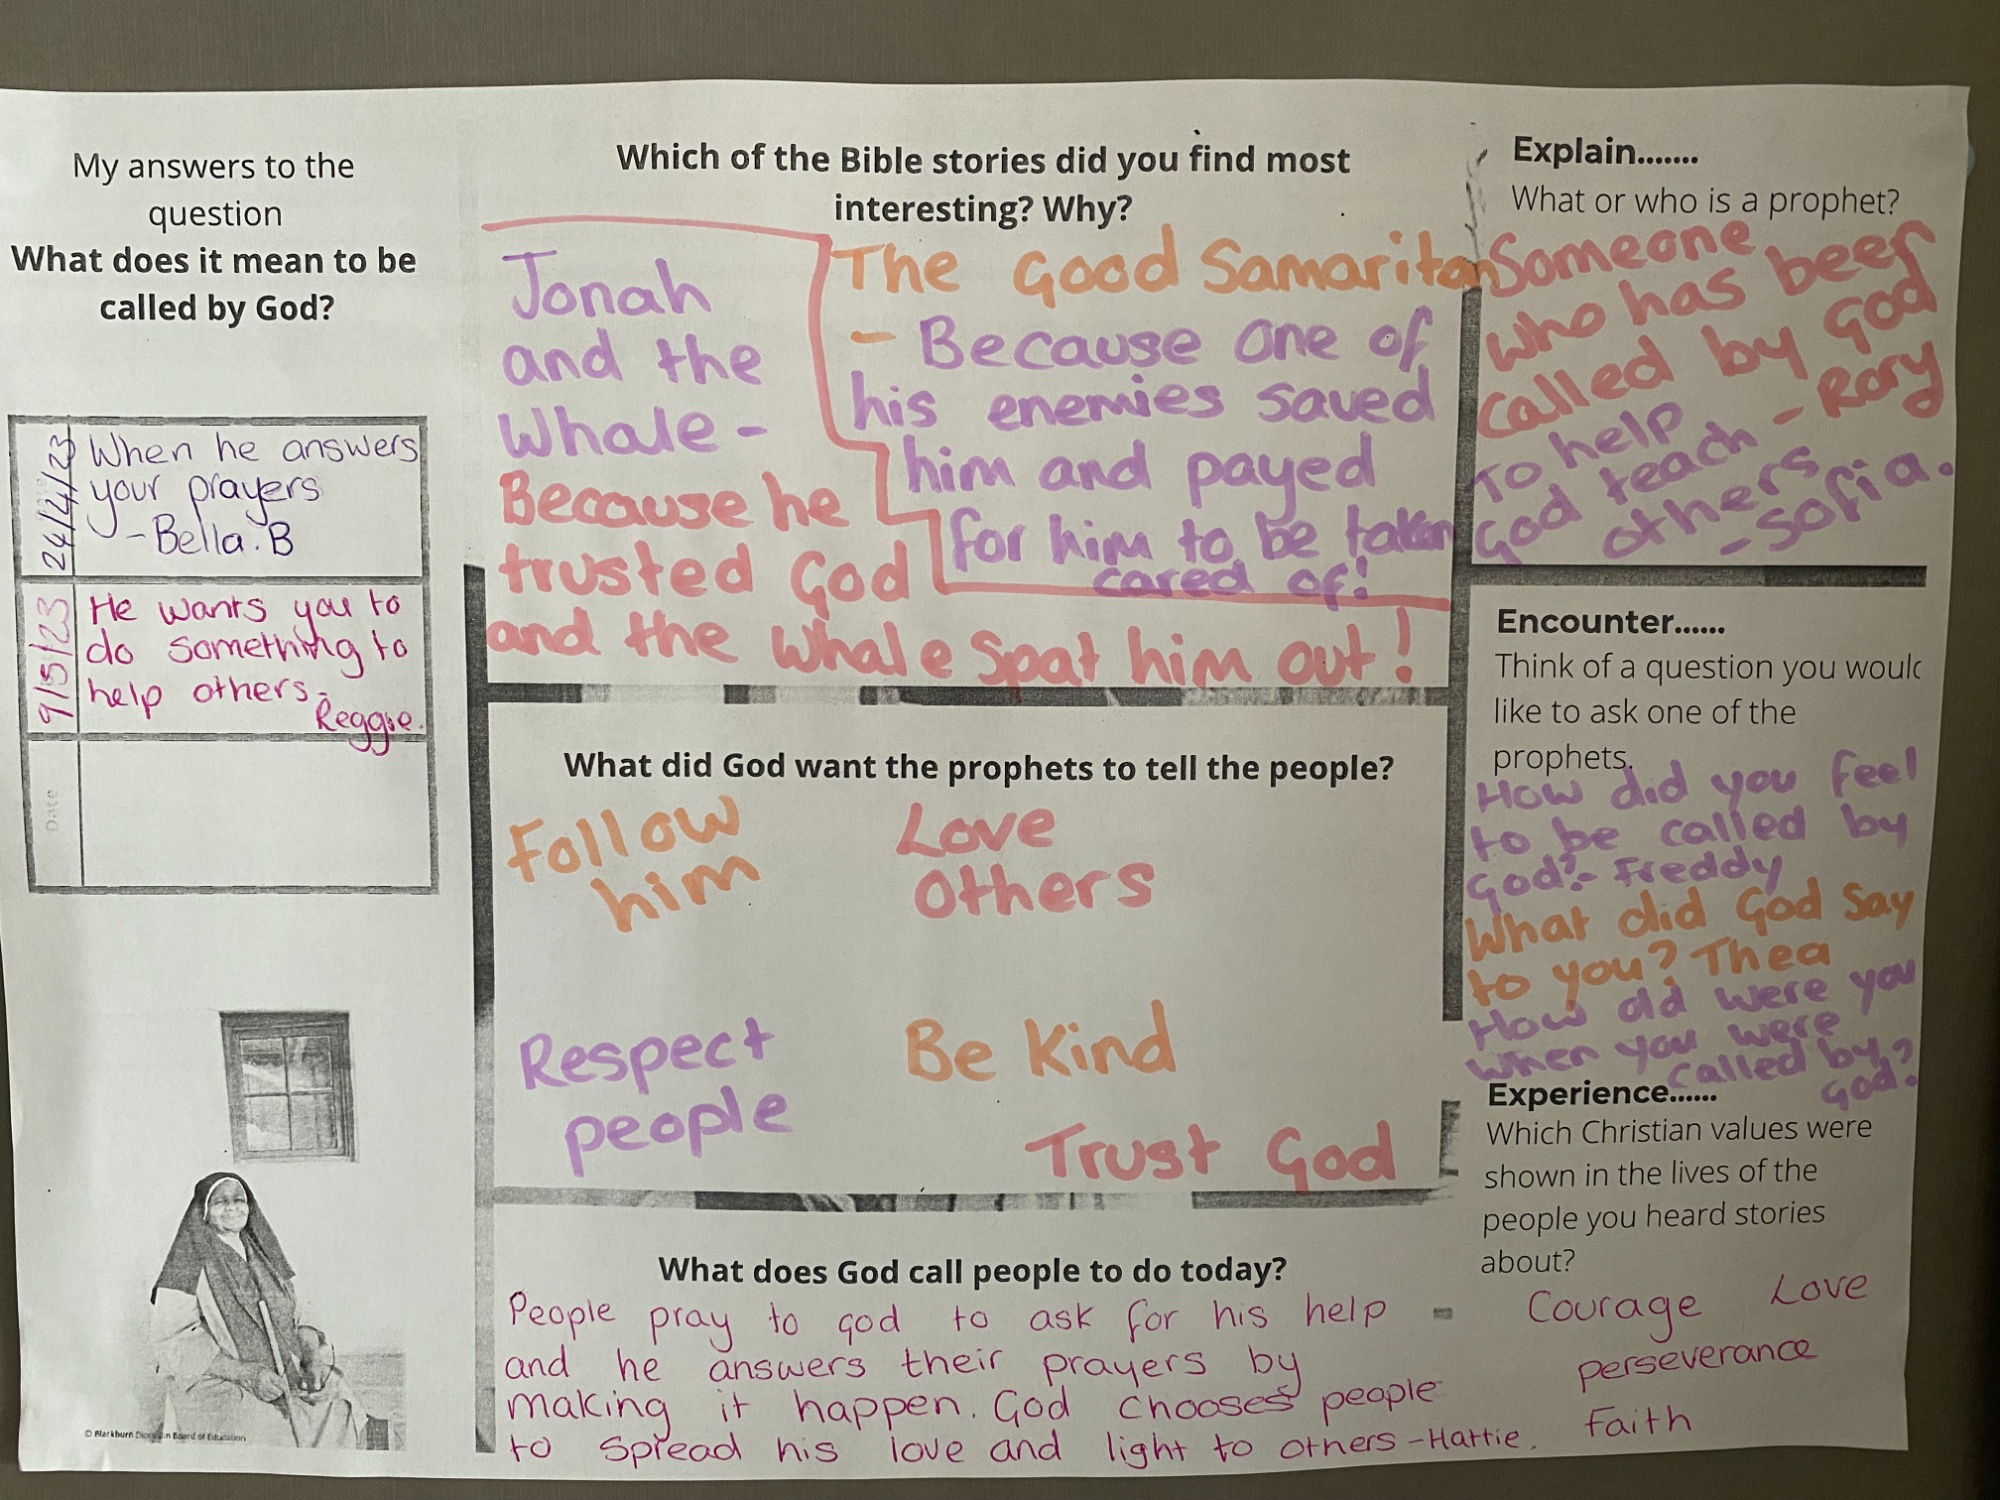 My answers to the
question
What does it mean to be
called by God?
24/4/23
When he answers
your prayers
- Bella. B
9/5/23
He wants you to
do something to
help others -
Reggie.
Date
© Blackburn Diocesan Board of Education
Which of the Bible stories did you find most
interesting? Why?
Jonah
and the
Whale -
Because he
trusted God
and the Whale Spat him out!
The Good Samaritan
- Because one of
his enemies saved
him and payed
for him to be taken
cared of!
What did God want the prophets to tell the people?
Follow
him
Love
Others
Respect
people
Be Kind
Trust God
What does God call people to do today?
People pray to god to ask for his help
and he answers their prayers by
making it happen. God chooses people
to spread his love and light to others - Hattie.
Explain.......
What or who is a prophet?
Someone
who has been
called by God
- Rory
To help
God teach
others
- Sofia.
Encounter......
Think of a question you would
like to ask one of the
prophets.
How did you feel
to be called by
God? - Freddy
What did God say
to you? Thea
How old were you
when you were
called by
God?
Experience......
Which Christian values were
shown in the lives of the
people you heard stories
about?
Courage Love
perseverance
Faith